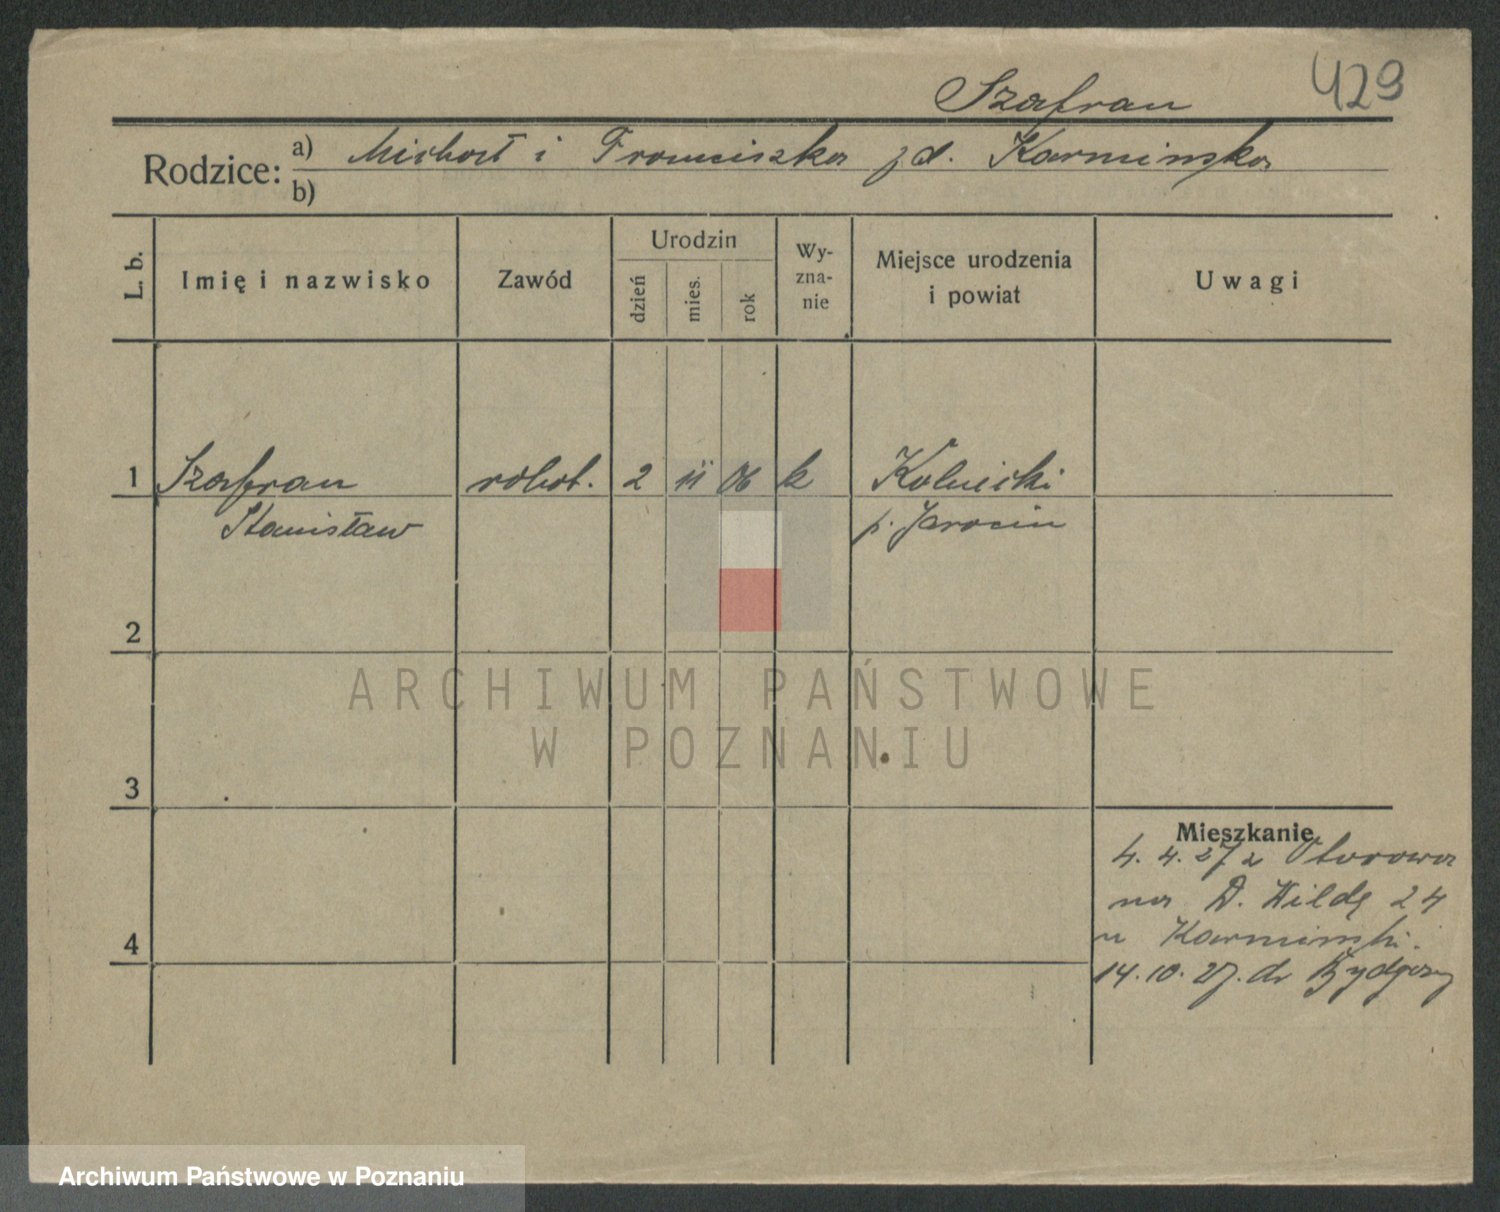 429
Szafran
Rodzice: a) Michał i Franciszka zd. Karmińska
b)
L. b.
Imię i nazwisko
Zawód
Urodzin
dzień
mies.
rok
Wy-
zna-
nie
Miejsce urodzenia
i powiat
Uwagi
1 Szafran robot. 2 11 06 k Kolnicki
Stanisław p. Jarocin
2
3
4
ARCHIWUM PAŃSTWOWE
W POZNANIU
Mieszkanie
4. 4. 27 z Otorowa
na D. Wildę 24
u Karmiński.
14. 10. 27. do Bydgoszy
Archiwum Państwowe w Poznaniu